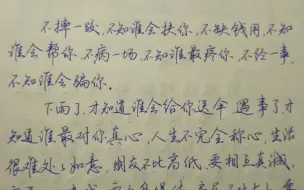 不摔一跤,不知谁会扶你,不缺钱用,不知
谁会帮你,不病一场,不知谁最疼你,不经一事,
不知谁会骗你。
下雨了,才知道谁会给你送伞 遇事了,才
知道谁最对你真心,人生不完全称心,生活
很难处处如意,朋友不比高低,要相互真诚,